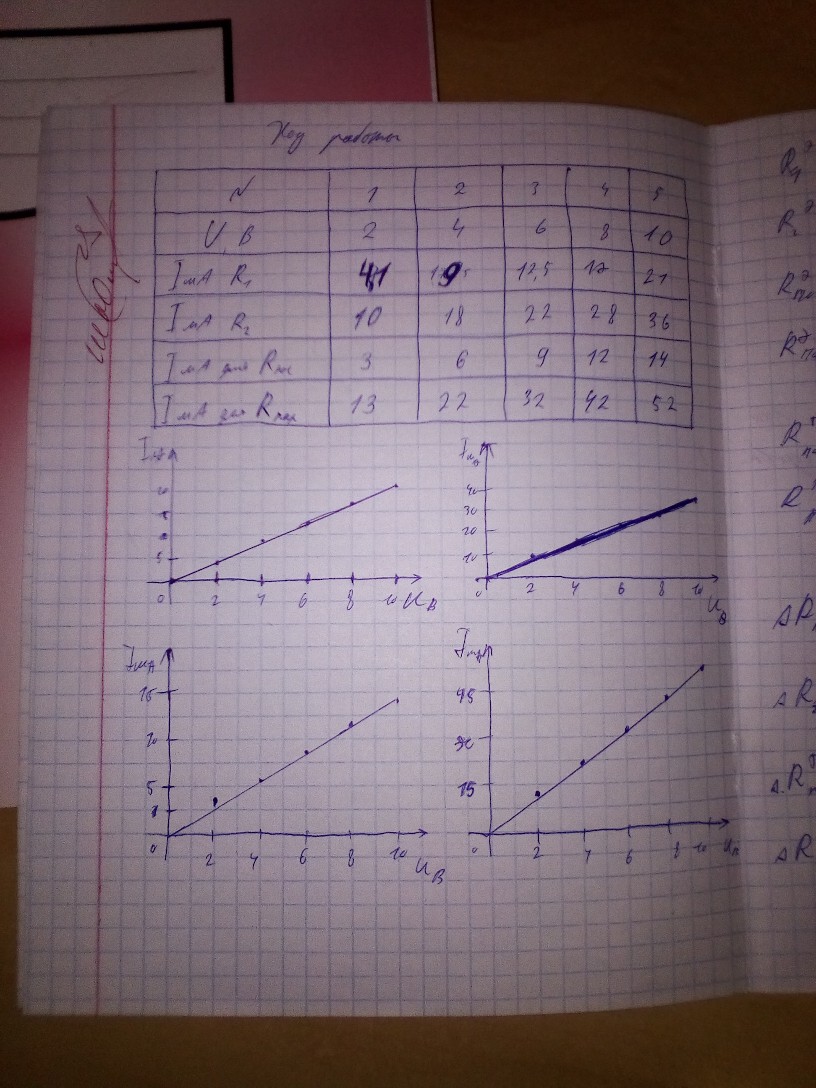 Ход работы
N 1 2 3 4 5
U, В 2 4 6 8 10
I мА R₁ 4,1 9 12,5 17 21
I мА R₂ 10 18 22 28 36
I мА для Rпос 3 6 9 12 14
I мА для Rпар 13 22 32 42 52
I мА
5
0 2 4 6 8 10 U В
I мА
40
30
20
10
0 2 4 6 8 10 U В
I мА
15
10
5
0 2 4 6 8 10 U В
I мА
45
30
15
0 2 4 6 8 10 U В
R₂
ΔR
ΔR
ΔR
ΔR